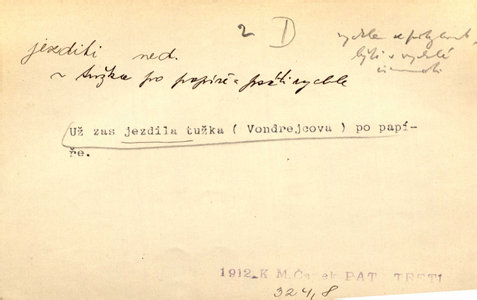 2 D
jezditi ned.
rychle se pohybovat,
býti v rychlé
činnosti
~ tužka po papíře = psáti rychle
Už zas jezdila tužka ( Vondrejcova ) po papí-
ře.
1912 K M. Čapek PAT. TŘETÍ
324,8